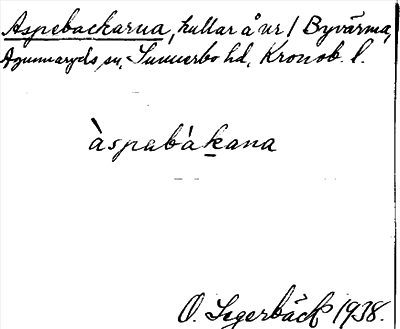 Aspebackarna, kullar å nr 1 Byvärma,
Agunnaryds sn, Sunnerbo hd, Kronob. l.
àspabàkana
O. Segerbäck 1938.